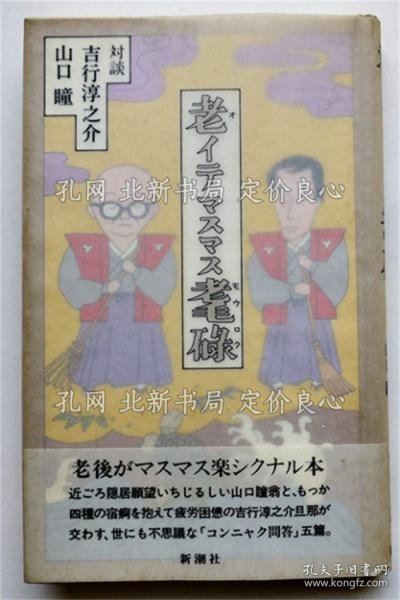 対談
吉行淳之介
山口瞳
老イテマスマス耄碌
オ
モウロク
孔网 北新书局 定价良心
孔网 北新书局 定价良心
孔网 北新书局 定价良心
老後がマスマス楽シクナル本
近ごろ隠居願望いちじるしい山口瞳翁と、もっか
四種の宿痾を抱えて疲労困憊の吉行淳之介旦那が
交わす、世にも不思議な「コンニャク問答」五篇。
新潮社
孔夫子旧书网
www.kongfz.com